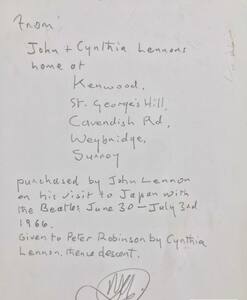 From:
John + Cynthia Lennons
home at
Kenwood,
St. George's Hill,
Cavendish Rd,
Weybridge,
Surrey
purchased by John Lennon
on his visit to Japan with
the Beatles June 30 – July 3rd
1966.
Given to Peter Robinson by Cynthia
Lennon, thence descent.